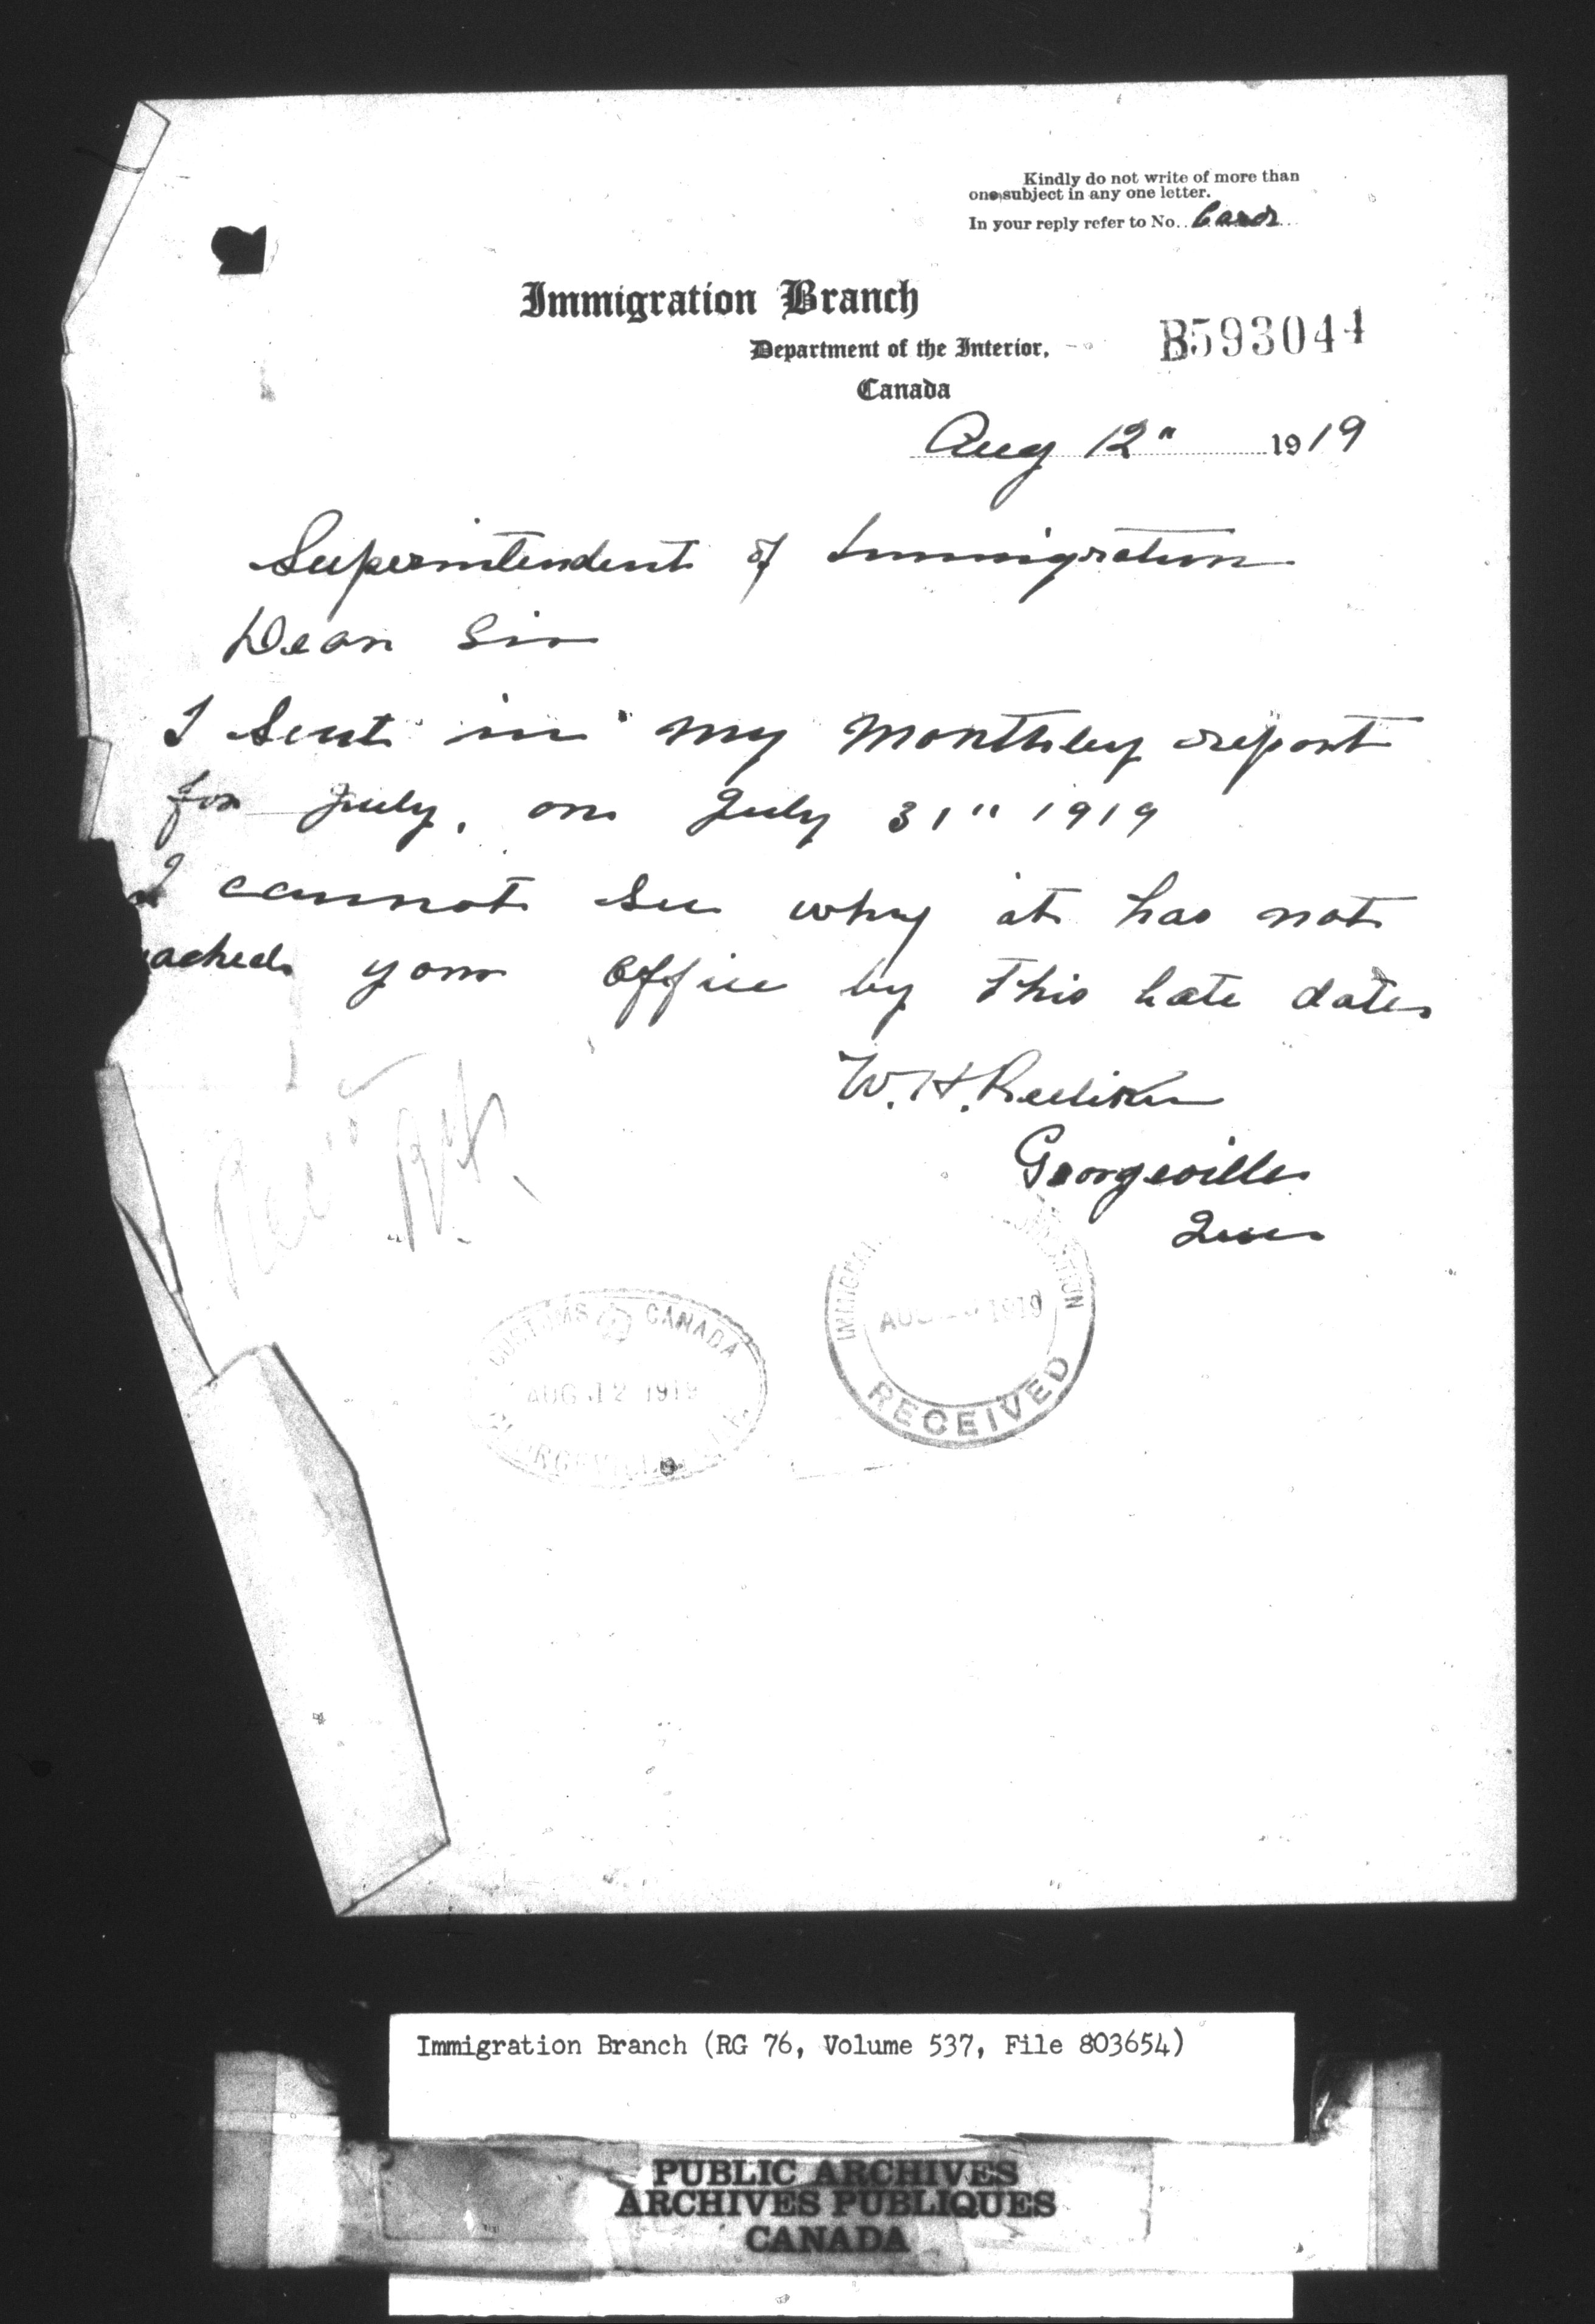 Kindly do not write of more than
one subject in any one letter.
In your reply refer to No. Card
Immigration Branch
Department of the Interior,
B593044
Canada
Aug 12" 1919
Superintendent of Immigration
Dear Sir
I Sent in my Monthley report
for July, on July 31" 1919
I cannot see why it has not
eached your office by this late date
W. H.
Georgeville
Que
CUSTOMS CANADA
AUG 12 1919
AUG 1919
RECEIVED
Immigration Branch (RG 76, Volume 537, File 803654)
PUBLIC ARCHIVES
ARCHIVES PUBLIQUES
CANADA